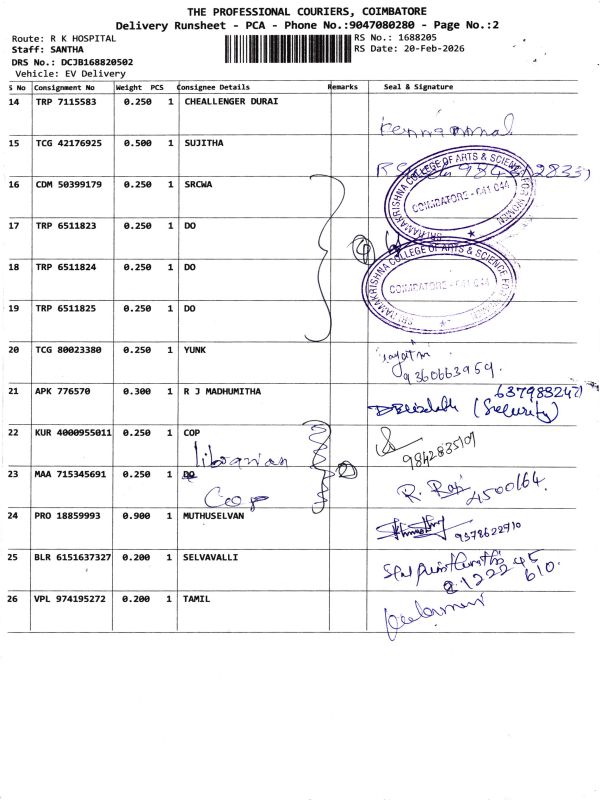 THE PROFESSIONAL COURIERS, COIMBATORE
Delivery Runsheet - PCA - Phone No.:9047080280 - Page No.:2
Route: R K HOSPITAL
RS No.: 1688205
Staff: SANTHA
RS Date: 20-Feb-2026
DRS No.: DCJB168820502
Vehicle: EV Delivery
S No Consignment No Weight PCS Consignee Details Remarks Seal & Signature
14 TRP 7115583 0.250 1 CHEALLENGER DURAI
15 TCG 42176925 0.500 1 SUJITHA
16 CDM 50399179 0.250 1 SRCWA
SRI RAMAKRISHNA COLLEGE OF ARTS & SCIENCE FOR WOMEN
COIMBATORE - 641 044
17 TRP 6511823 0.250 1 DO
④
18 TRP 6511824 0.250 1 DO
SRI RAMAKRISHNA COLLEGE OF ARTS & SCIENCE FOR WOMEN
COIMBATORE - 641 044
19 TRP 6511825 0.250 1 DO
20 TCG 80023380 0.250 1 YUNK
9360663959
21 APK 776570 0.300 1 R J MADHUMITHA
(Security)
22 KUR 4000955011 0.250 1 COP
9842835109
librarian
23 MAA 715345691 0.250 1 DO
②
Coop
R. Raji
4500164.
24 PRO 18859993 0.900 1 MUTHUSELVAN
9378622710
25 BLR 6151637327 0.200 1 SELVAVALLI
26 VPL 974195272 0.200 1 TAMIL